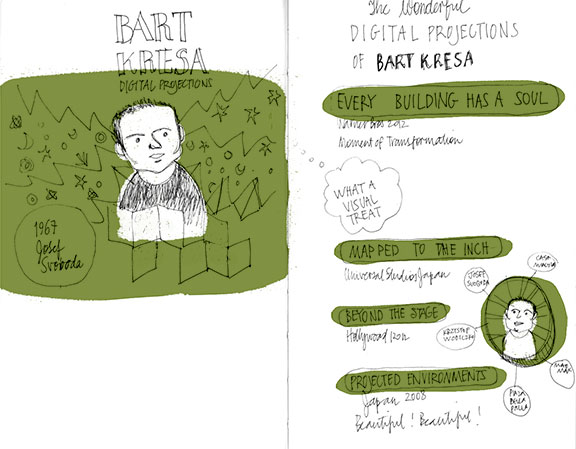 BART
KRESA
DIGITAL PROJECTIONS
1967
Josef
Svoboda
The Wonderful
DIGITAL PROJECTIONS
OF BART KRESA
EVERY BUILDING HAS A SOUL
Bros 2012
Moment of Transformation
WHAT A
VISUAL
TREAT
MAPPED TO THE INCH
Universal Studios Japan
BEYOND THE STAGE
Hollywood 2012
PROJECTED ENVIRONMENTS
Japan 2008
Beautiful! Beautiful!
CASA
JOSEF
SVOBODA
KRZYSZTOF
WODICZKO